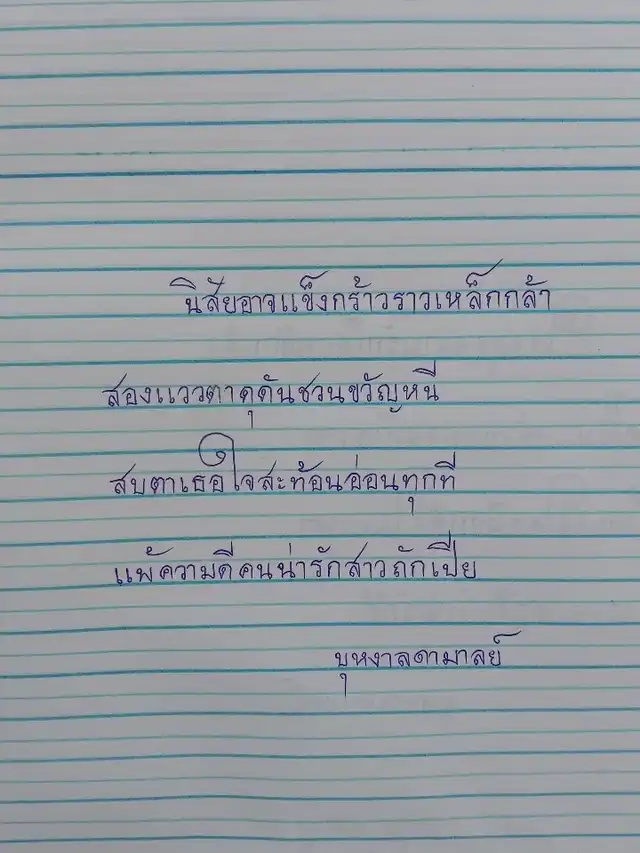 นิสัยอาจแข็งกร้าวราวเหล็กกล้า
สองแววตาดุดันชวนขวัญหนี
สบตาเธอใจสะท้อนอ่อนทุกที
แพ้ความดีคนน่ารักสาวถักเปีย
บุหงาลดามาลย์